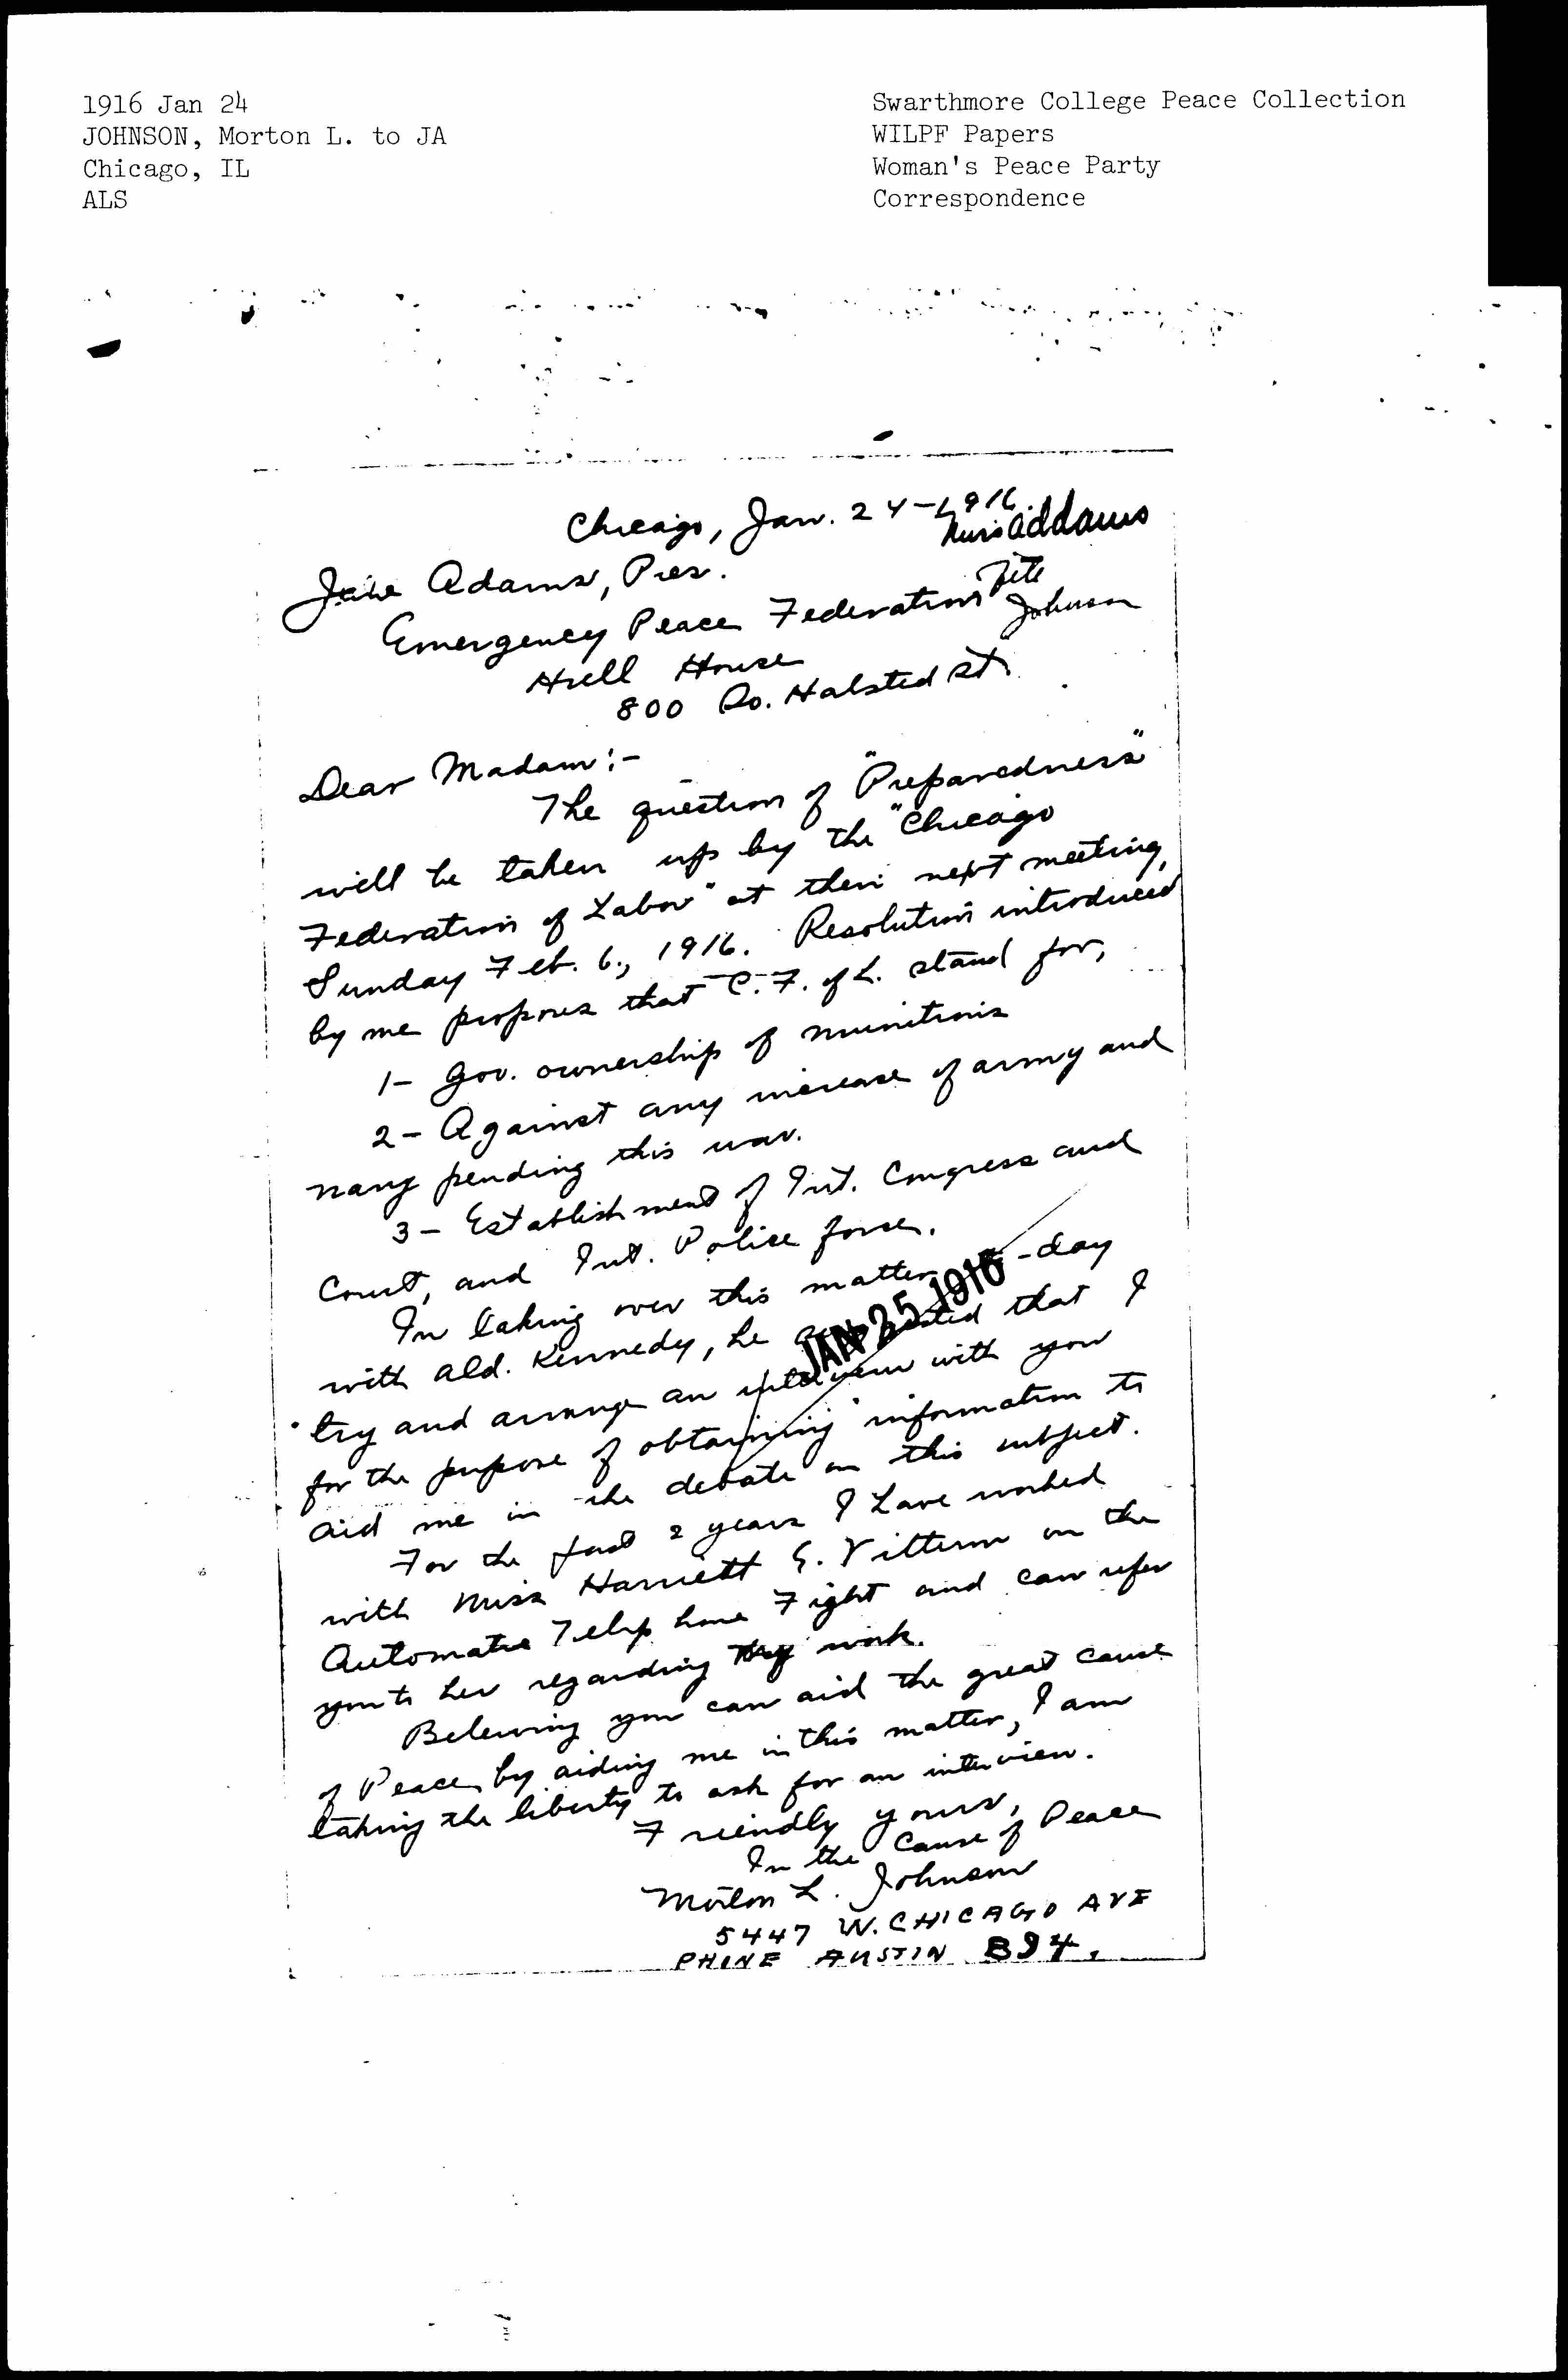 1916 Jan 24
JOHNSON, Morton L. to JA
Chicago, IL
ALS
Swarthmore College Peace Collection
WILPF Papers
Woman's Peace Party
Correspondence
Chicago, Jan. 24-1916.
Miss Addams
Jane Adams, Pres.
Emergency Peace Federation
Johnson
Hull House
800 So. Halsted St.
Dear Madam:-
The question of "Preparedness"
will be taken up by the "Chicago
Federation of Labor" at their next meeting,
Sunday Feb. 6., 1916. Resolution introduced
by me proposes that C. F. of L. stand for,
1- Gov. ownership of munitions
2- Against any increase of army and
navy pending this war.
3- Establishment of Int. Congress and
Court, and Int. Police force.
In taking over this matter -day
with Ald. Kennedy, he that I
JAN 25 1916
try and arrange an interview with you
for the purpose of obtaining information to
aid me in the debate on this subject.
For the past 2 years I have worked
with Miss Harriett E. Vittum on the
Automatic Telephone Fight and can refer
you to her regarding my work.
Beleiving you can aid the great cause
of Peace, by aiding me in this matter, I am
taking the liberty to ask for an interview.
Friendly yours,
In the Cause of Peace
Morton L. Johnson
5447 W. CHICAGO AVE
PHONE AUSTIN 894.